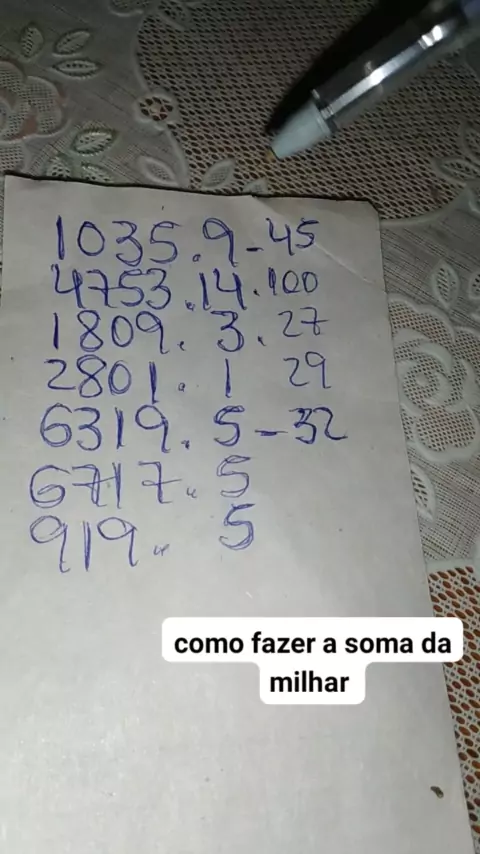 1035.9-45
4753.14.100
1809. 3. 27
2801. 1 29
6319. 5-32
6717.. 5
919.. 5
como fazer a soma da
milhar